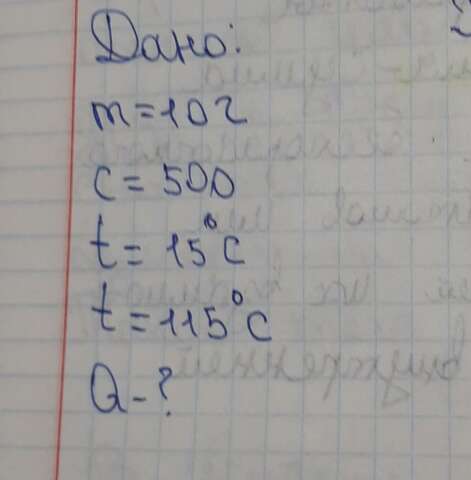 Дано:
m=10г
c=500
t=15°C
t=115°C
Q-?